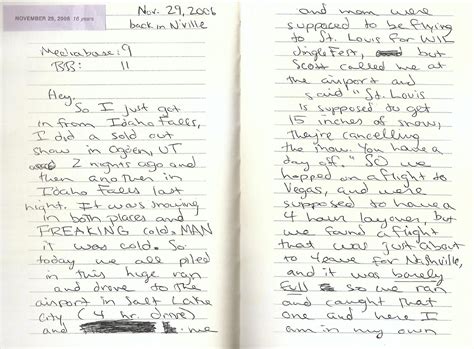 NOVEMBER 29, 2006 16 years
Nov. 29, 2006
back in N'ville
Mediabase: 9
BB: 11
Hey,
So I just got
in from Idaho Falls,
I did a sold out
show in Ogden, UT
2 nights ago and
then another in
Idaho Falls last
night. It was snowing
in both places and
FREAKING cold. MAN
it was cold. So
today we all piled
in this huge van
and drove to the
airport in Salt Lake
City (4 hr. drove)
and me
and mom were
supposed to be flying
to St. Louis for WIL
JingleFest, but
Scott called me at
the airport and
said "St. Louis
is supposed to get
15 inches of snow,
they're cancelling
the show. You have a
day off." SO we
hopped on a flight to
Vegas, and were
supposed to have a
4 hour layover, but
we found a flight
that was just about
to leave for Nashville,
and it was barely
full so we ran
and caught that
one and here I
am in my own